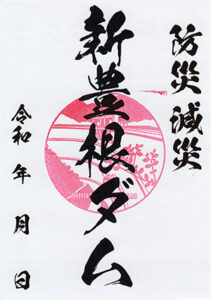 防災 減災
新豊根ダム
令和 年 月 日